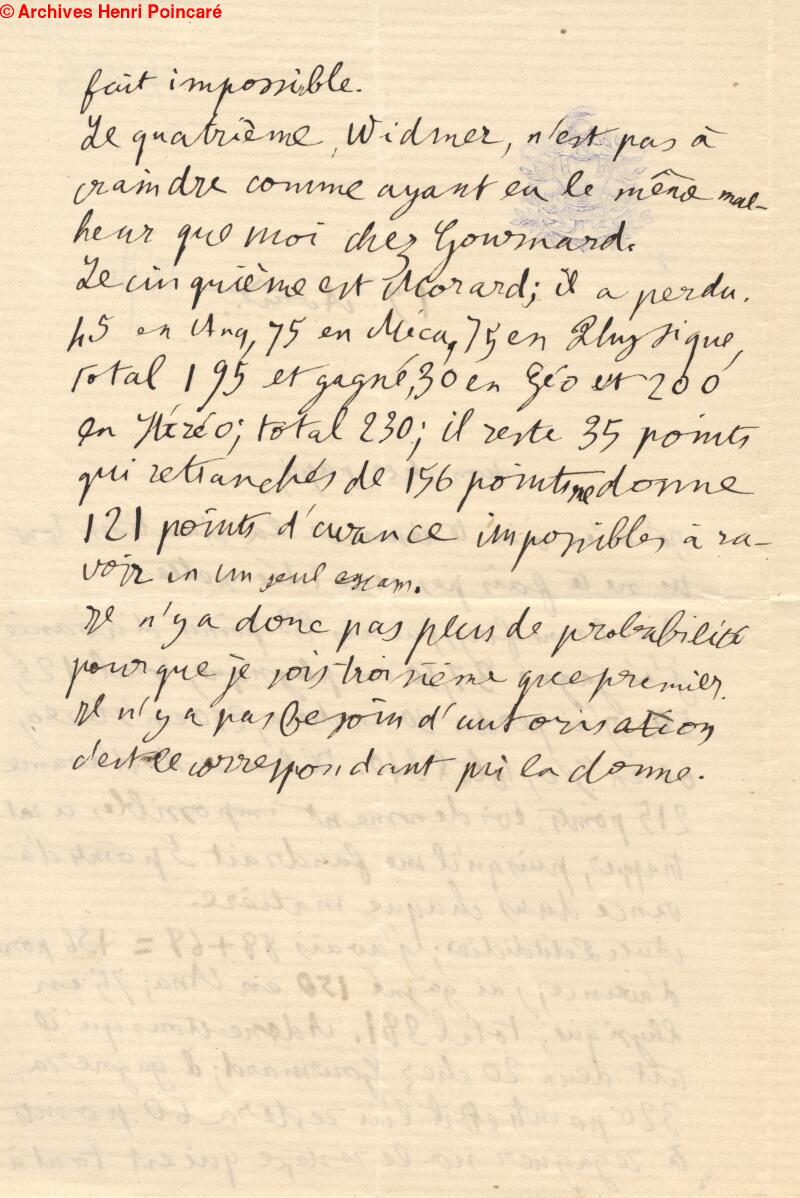 © Archives Henri Poincaré
fait impossible.
Le quatrième, Widmer, n'est pas à
craindre comme ayant eu le même mal-
heur que moi chez Gourmard.
Le cinquième est Morard; il a perdu.
45 en Ana, 75 en Méca, 75 en Physique,
total 195 et gagné, 30 en Géo et 200
en Stéréo; total 230; il reste 35 points
qui retranchés de 156 points me donne
121 points d'avance impossibles à ra-
voir en un seul exam.
Il n'y a donc pas plus de probabilité
pour que je sois troisième que premier.
Il n'y a pas besoin d'autorisation
c'est le correspondant qui la donne.